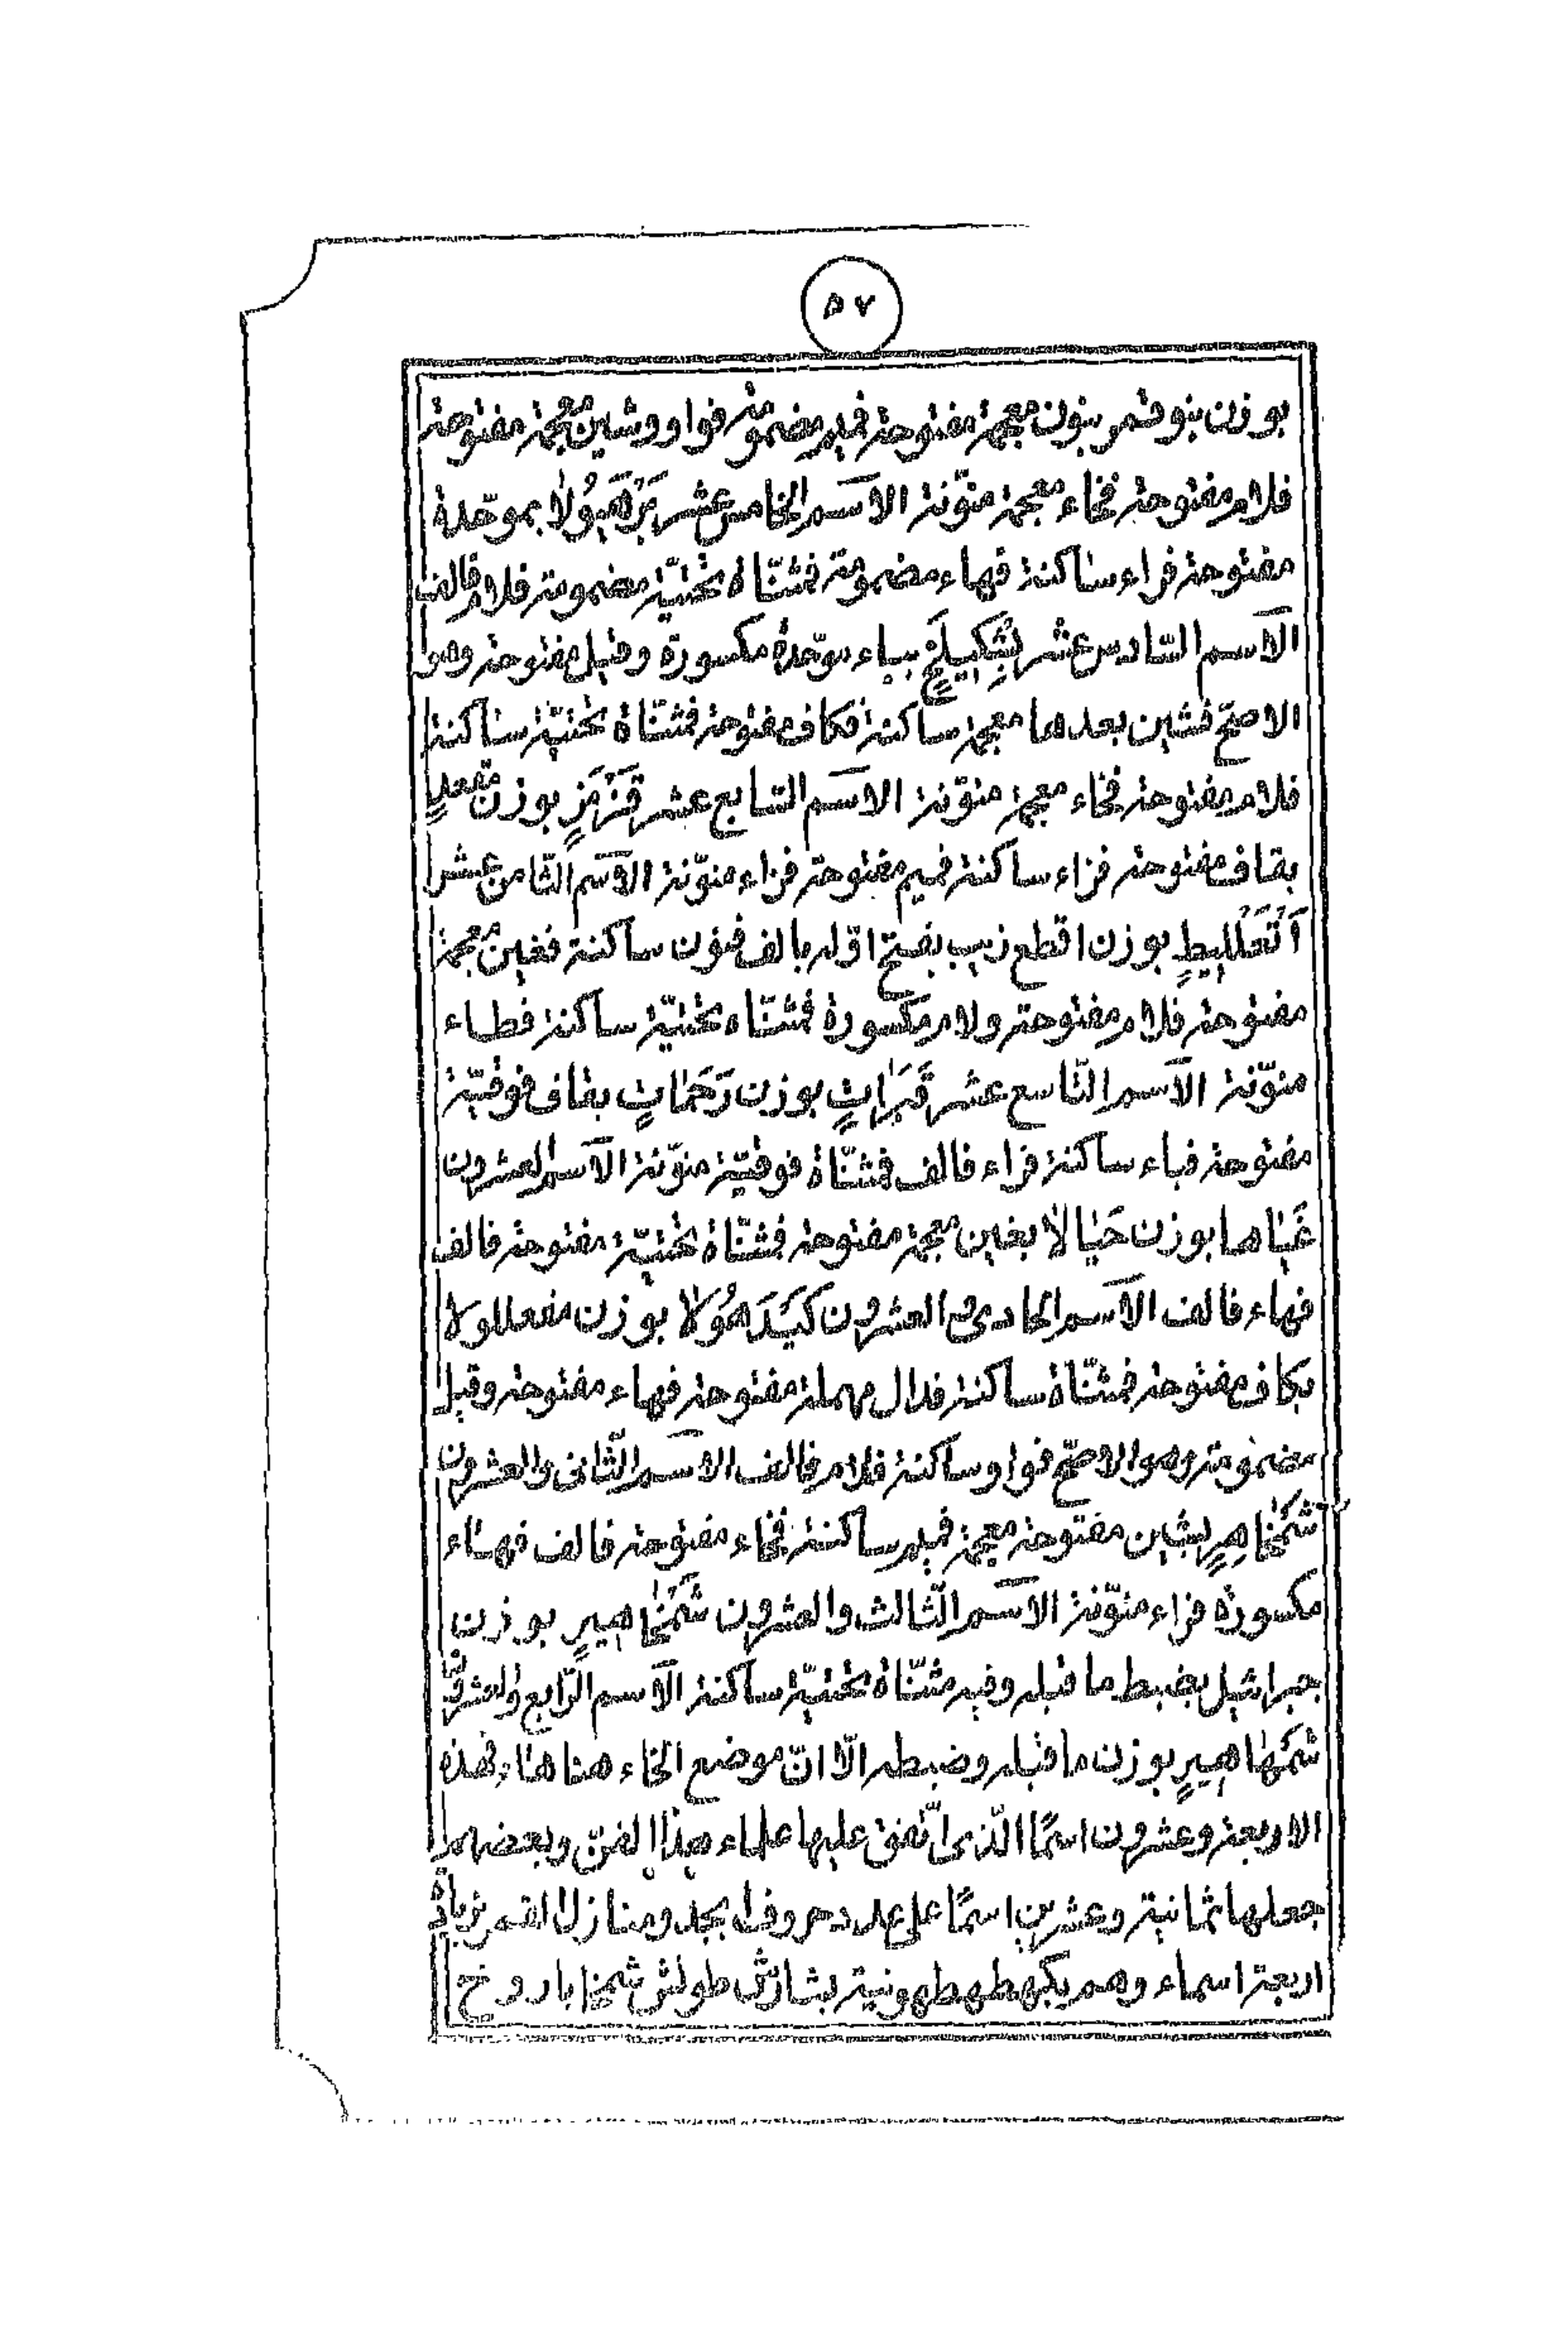 ٥٧
بوزن بنو قمر بنون معجمة مفتوحة فميم مضمومة فواو وشين معجمة مفتوحة
فلام مفتوحة فخاء معجمة منوّنة الاسم الخامس عشر بَرْهَيُولا بموحّدة
مفتوحة فراء ساكنة فهاء مضمومة فمثنّاة تحتيّة مضمومة فلام فالف
الاسم السّادس عشر بَشْكَيلَخٍ بباء موحّدة مكسورة وقيل مفتوحة وهو
الاصحّ فشين بعدها معجمة ساكنة فكاف مفتوحة فمثنّاة تحتيّة ساكنة
فلام مفتوحة فخاء معجمة منوّنة الاسم السّابع عشر قَزْمَزٍ بوزن مقعدٍ
بقاف مفتوحة فزاء ساكنة فميم مفتوحة فزاء منوّنة الاسم الثّامن عشر
اَنْغَلَلِيطٍ بوزن اقطع زيب بفتح اوّله بالف فنون ساكنة فغين معجمة
مفتوحة فلام مفتوحة ولام مكسورة فمثنّاه تحتيّة ساكنة فطاء
منوّنة الاسم التّاسع عشر قَبَرَاتٍ بوزن رَحَمَاتٍ بقاف فوقيّة
مفتوحة فباء ساكنة فراء فالف فمثنّاة فوقيّة منوّنة الاسم العشرون
غَيَاها بوزن حَيَالا بغين معجمة مفتوحة فمثنّاة تحتيّة مفتوحة فالف
فهاء فالف الاسم الحادى والعشرون كَيْدَهُولا بوزن مفعللولا
بكاف مفتوحة فمثنّاة ساكنة فدال مهملة مفتوحة فهاء مفتوحة وقيل
مضمومة وهو الاصحّ فواو ساكنة فلام فالف الاسم الثّانى والعشرون
شَمْخَاهِرٍ بشين مفتوحة معجمة فميم ساكنة فخاء مفتوحة فالف فهاء
مكسورة فراء منوّنة الاسم الثّالث والعشرون شَمْخَاهِيرٍ بوزن
جبرائيل بضبط ما قبله وفيه مثنّاة تحتيّة ساكنة الاسم الرّابع والعشرون
شَمْهَاهِيرٍ بوزن ما قبله وضبطه الّا انّ موضع الخاء هنا هاء فهذه
الاربعة وعشرون اسمًا الّذى اتّفق عليها علماء هذا الفنّ وبعضهم
جعلها ثمانية وعشرين اسمًا على عدد حروف ابجد ومنازل القمر بزيادة
اربعة اسماء وهم بكهطهطهونية بشارش طونش شمخا باروخ